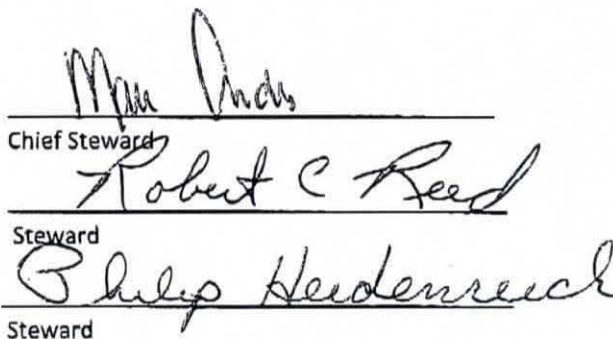 Chief Steward
Robert C Reed
Steward
Philip Heidenreich
Steward